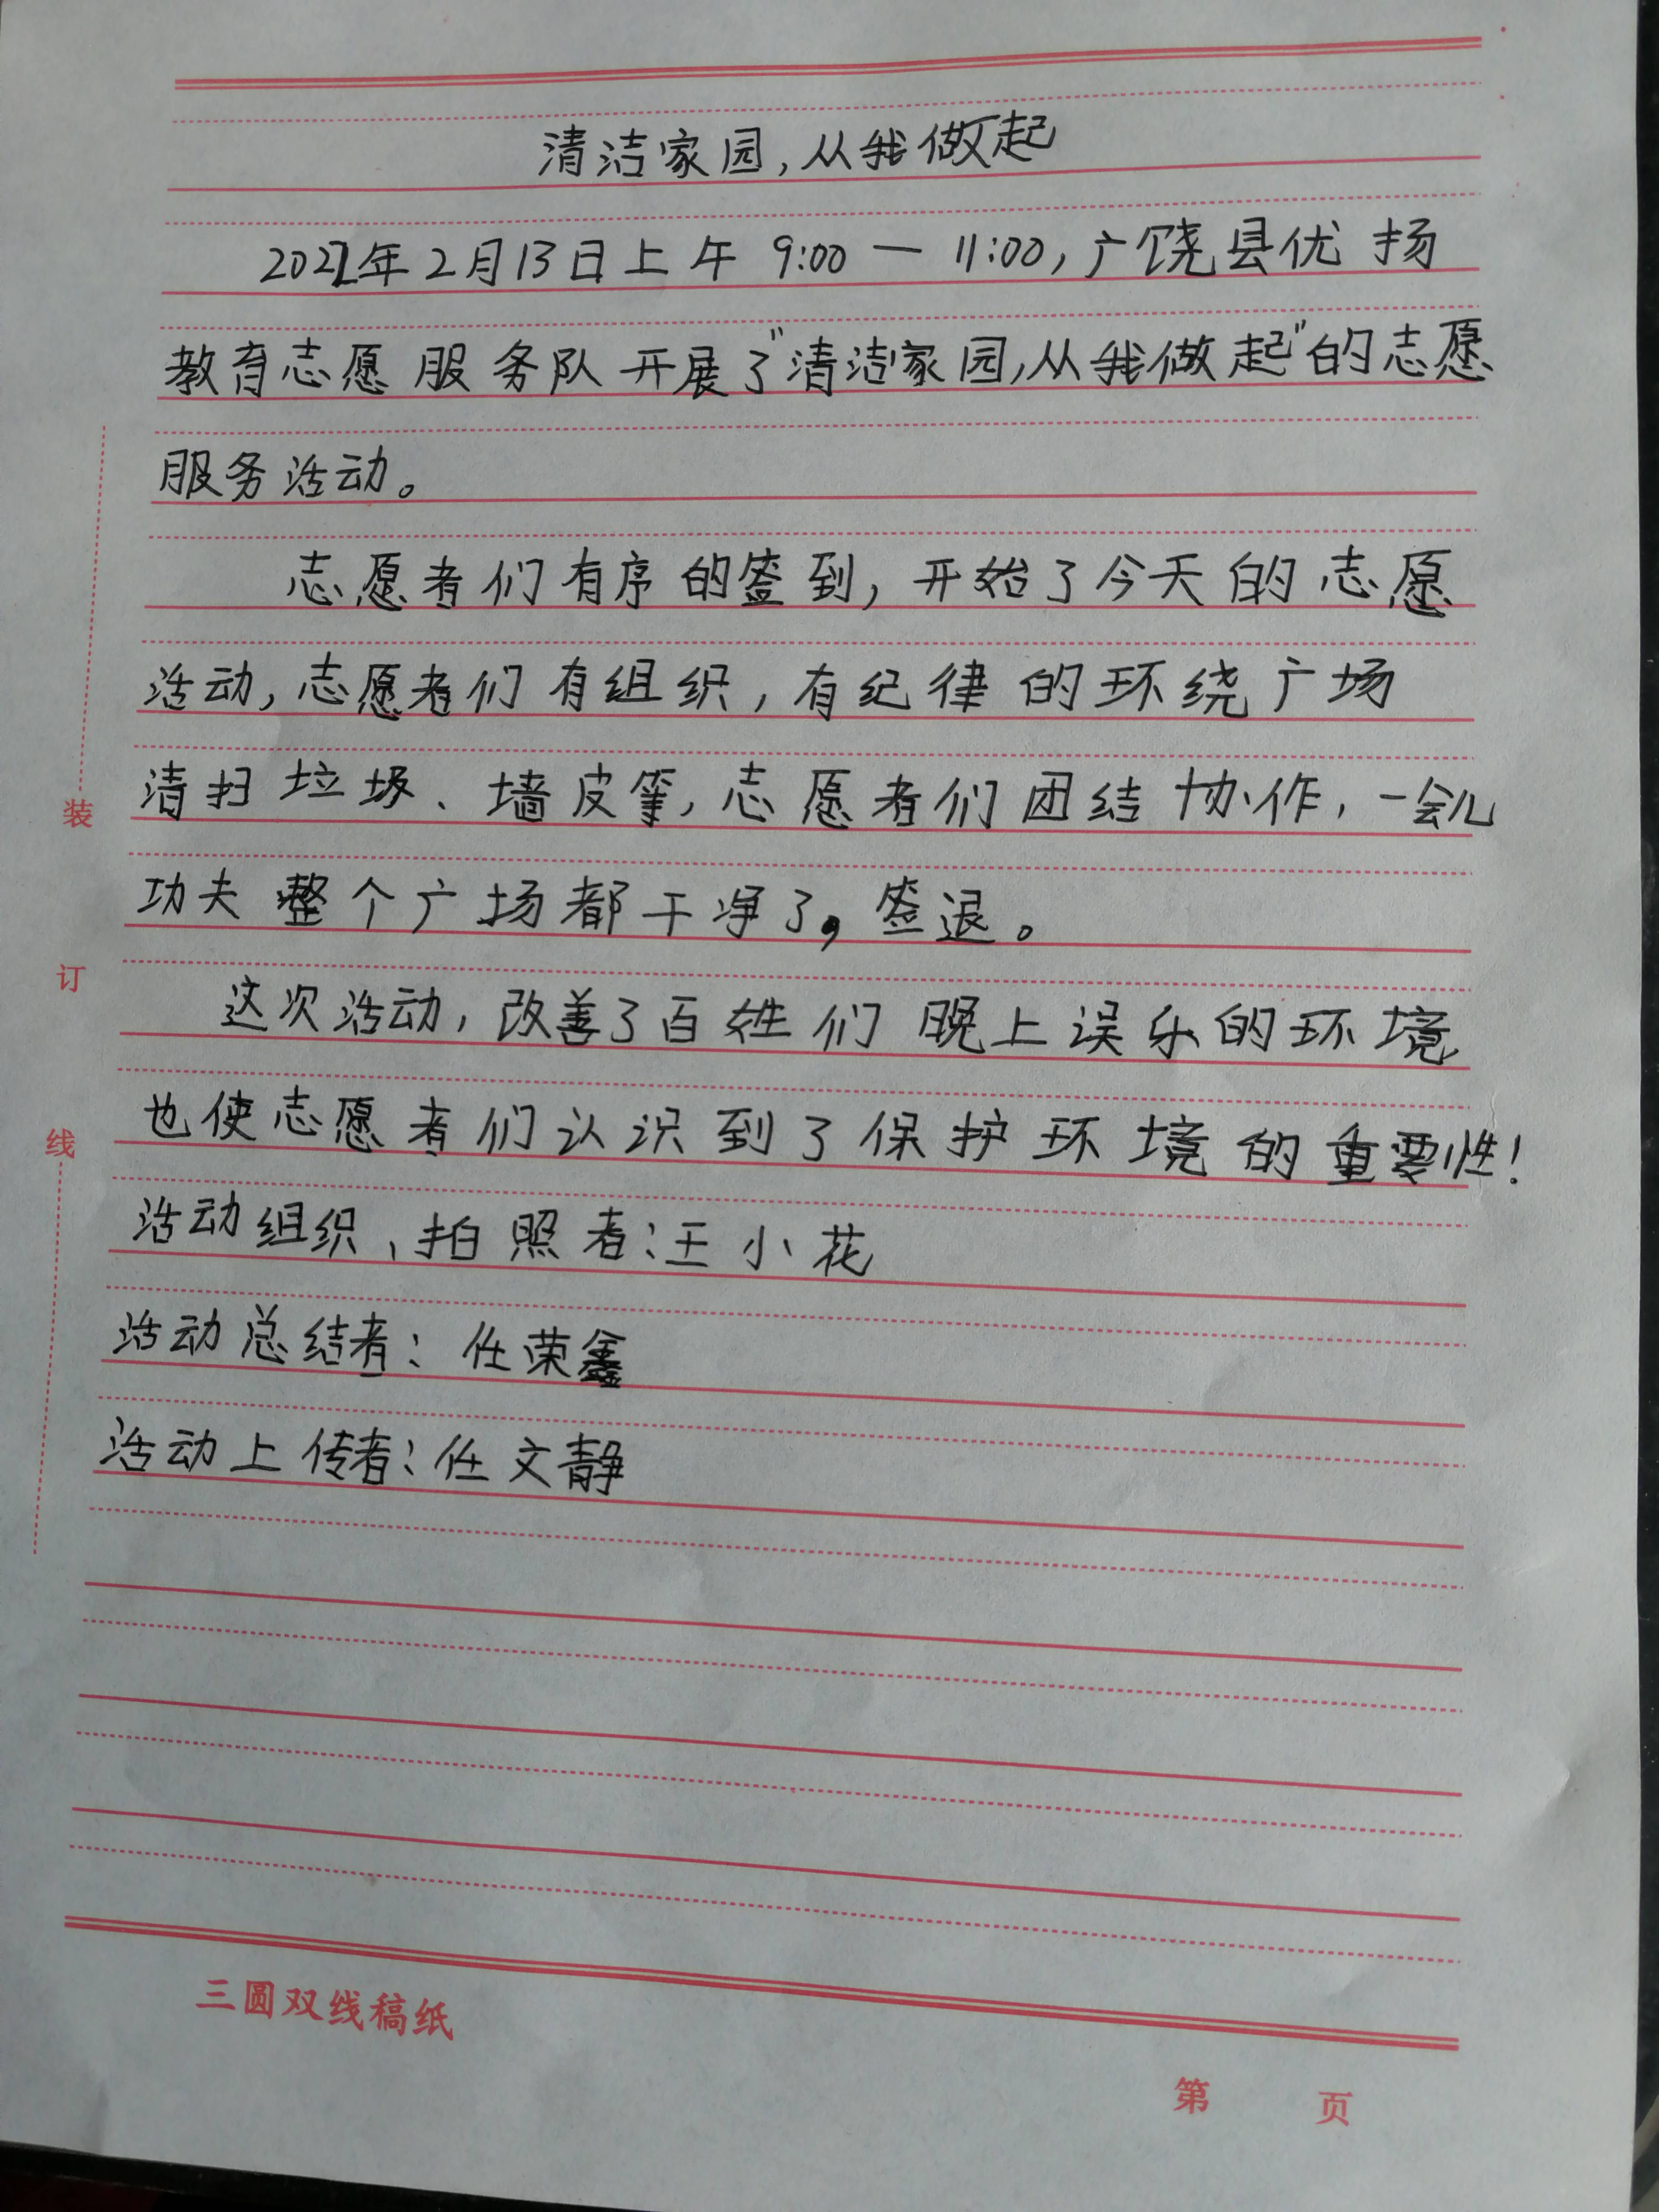 清洁家园,从我做起
2022年2月13日上午 9:00 — 11:00,广饶县优扬
教育志愿服务队开展了"清洁家园,从我做起"的志愿
服务活动。
志愿者们有序的签到,开始了今天的志愿
活动,志愿者们有组织,有纪律的环绕广场
清扫垃圾、墙皮等,志愿者们团结协作,一会儿
功夫整个广场都干净了,签退。
这次活动,改善了百姓们晚上误乐的环境
也使志愿者们认识到了保护环境的重要性!
活动组织、拍照者:王小花
活动总结者:任荣鑫
活动上传者:任文静
装
订
线
三圆双线稿纸
第 页